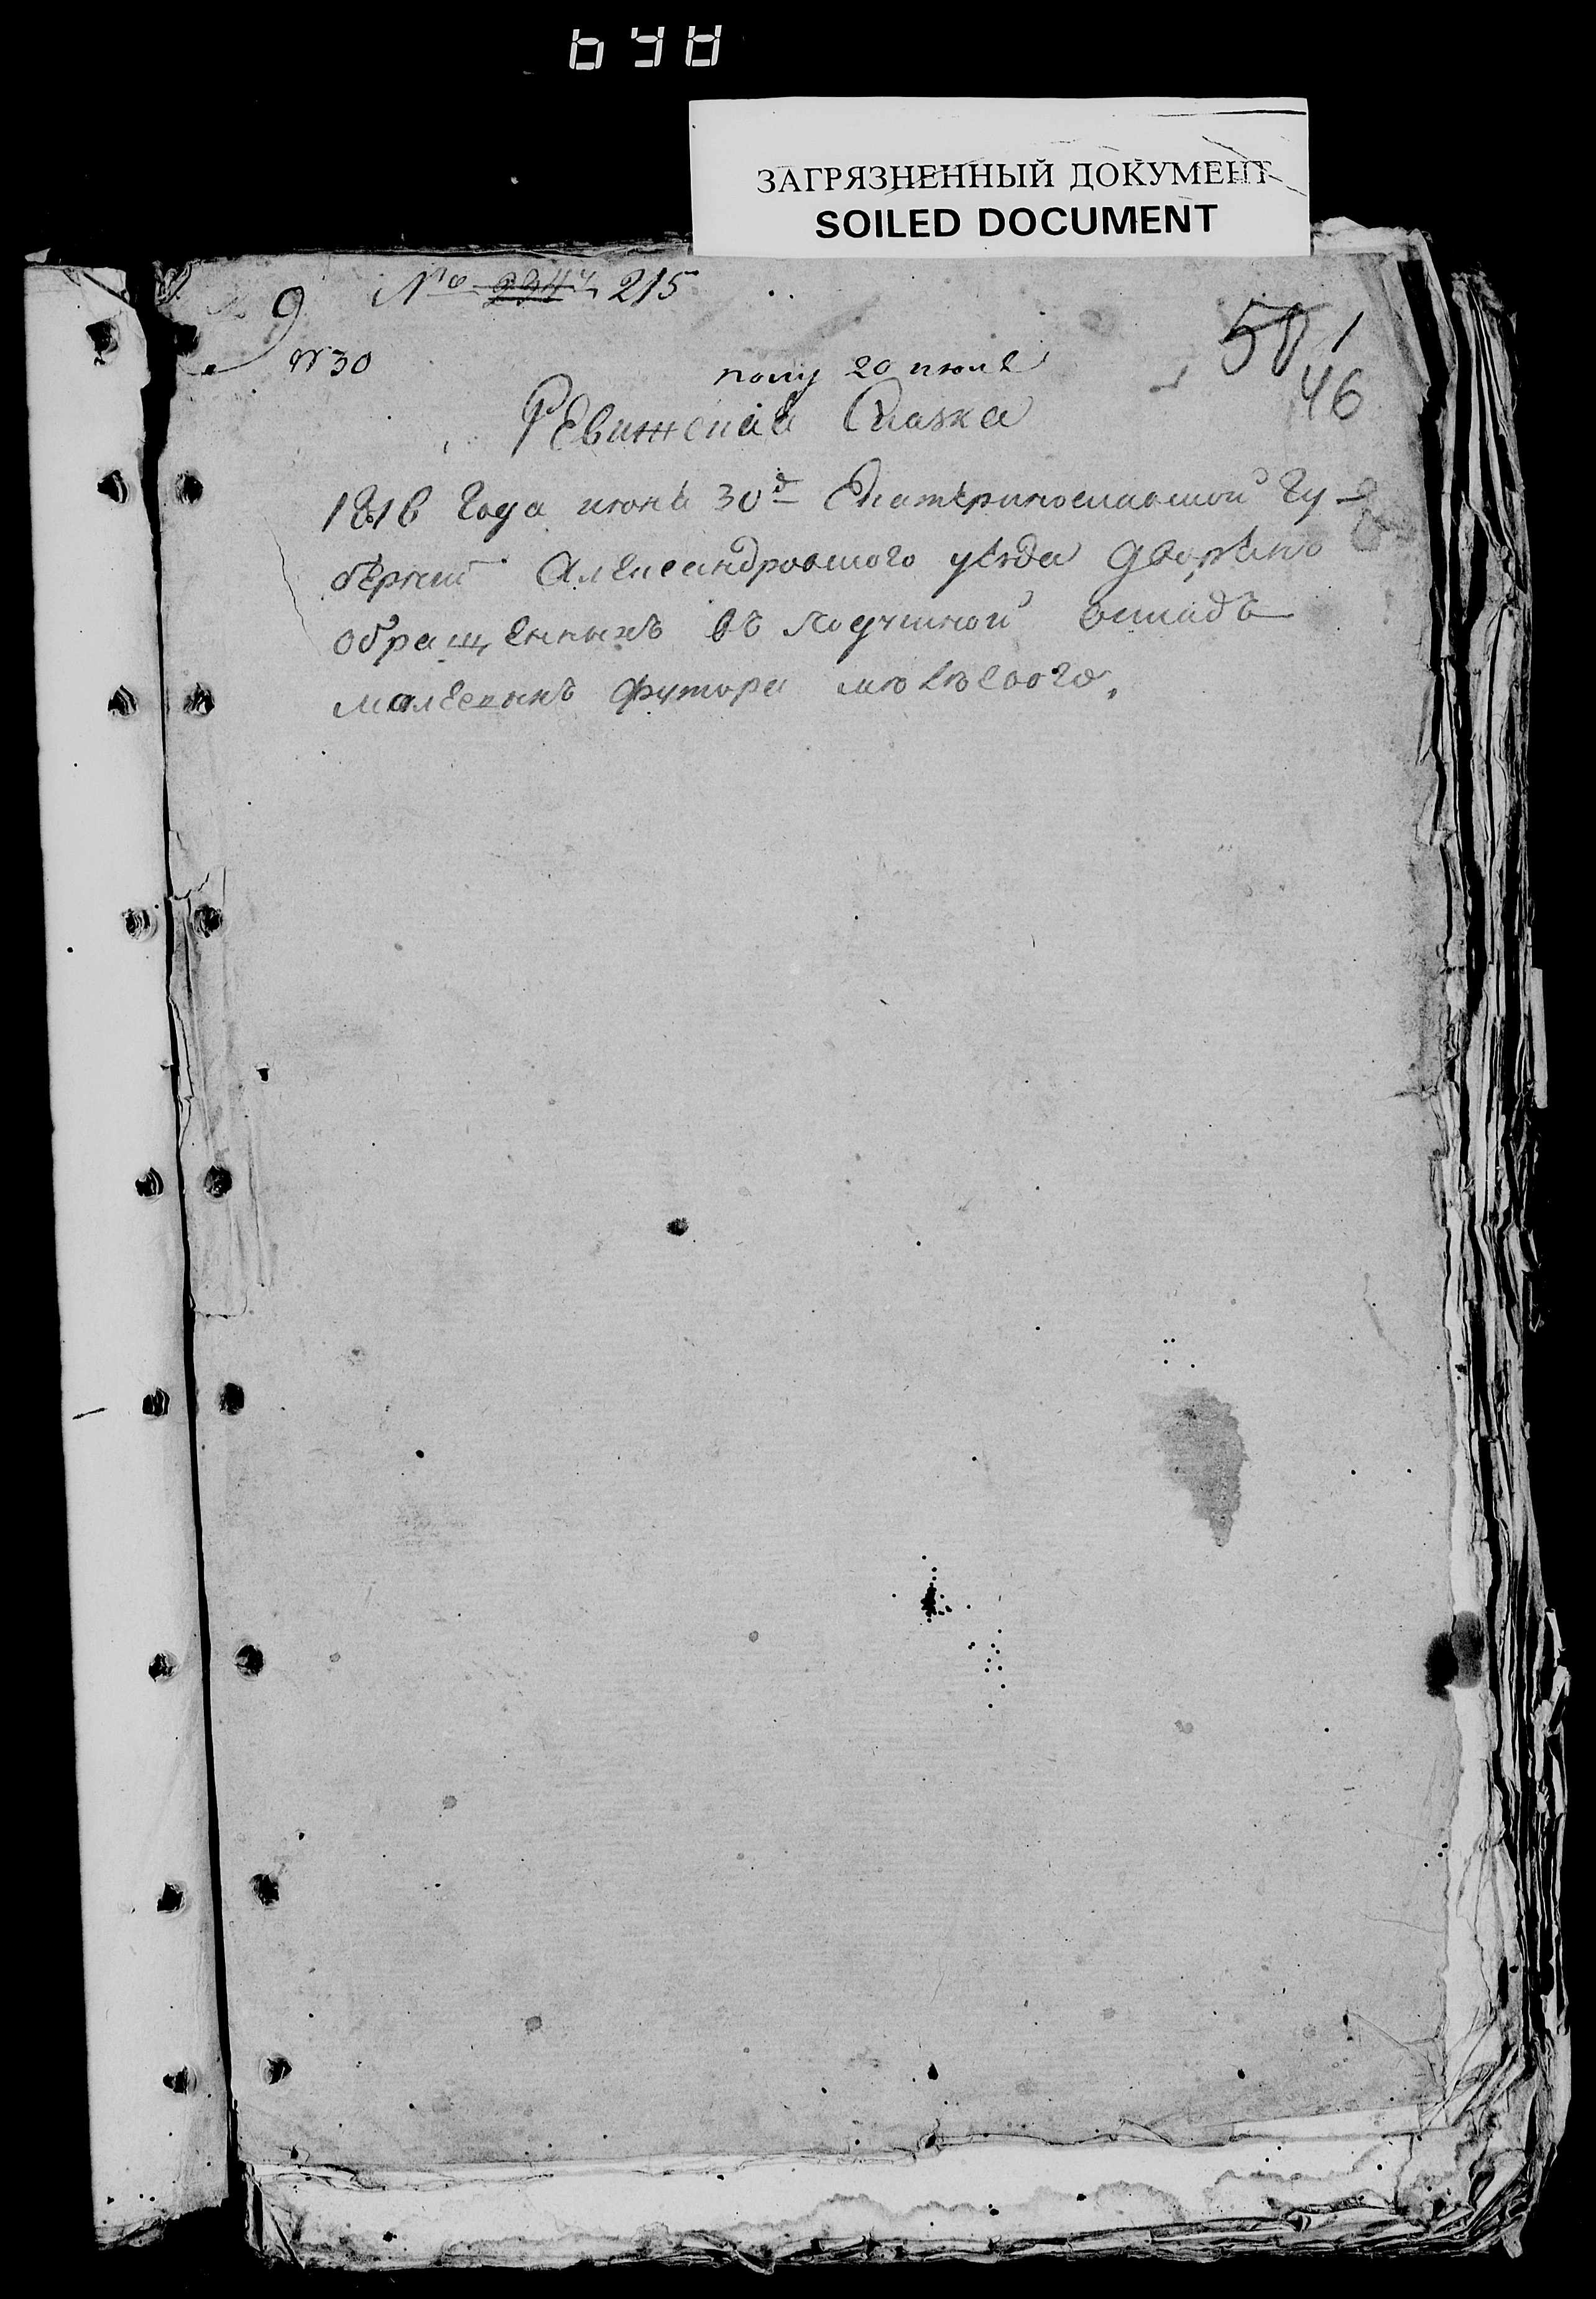 ЗАГРЯЗНЕННЫЙ ДОКУМЕНТ
SOILED DOCUMENT
9 № 215
№ 30
полу 20 июля
50 1
46
Ревижская Сказка
1816 года июня 30д Екатеринославской Гу-
берниі Александровского уезда дворянъ
обращенныхъ въ подушной окладъ
хутора